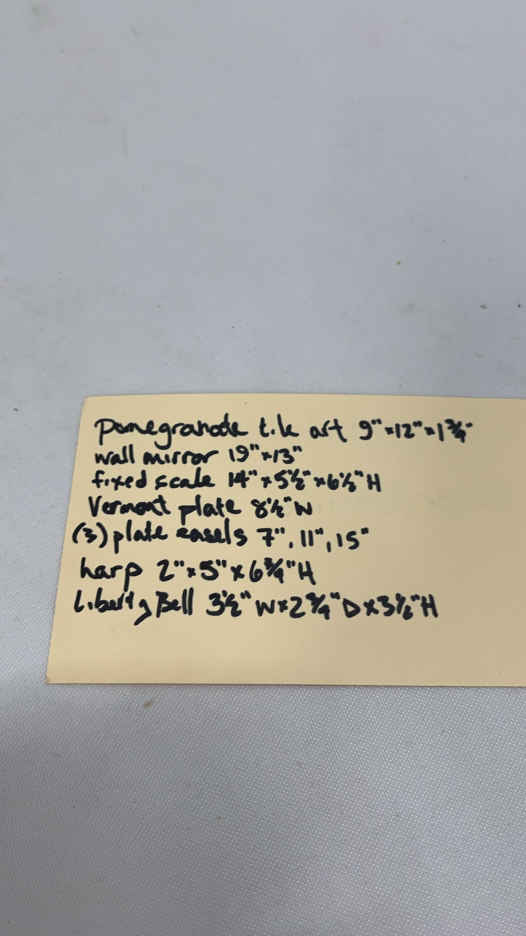 Pomegranate tile art 9"×12"×1¾"
wall mirror 19"×13"
fixed scale 14"×5½"×6½"H
Vermont plate 8½"W
(3) plate easels 7", 11", 15"
harp 2"×5"×6¾"H
Liberty Bell 3½"W×2¾"D×3½"H